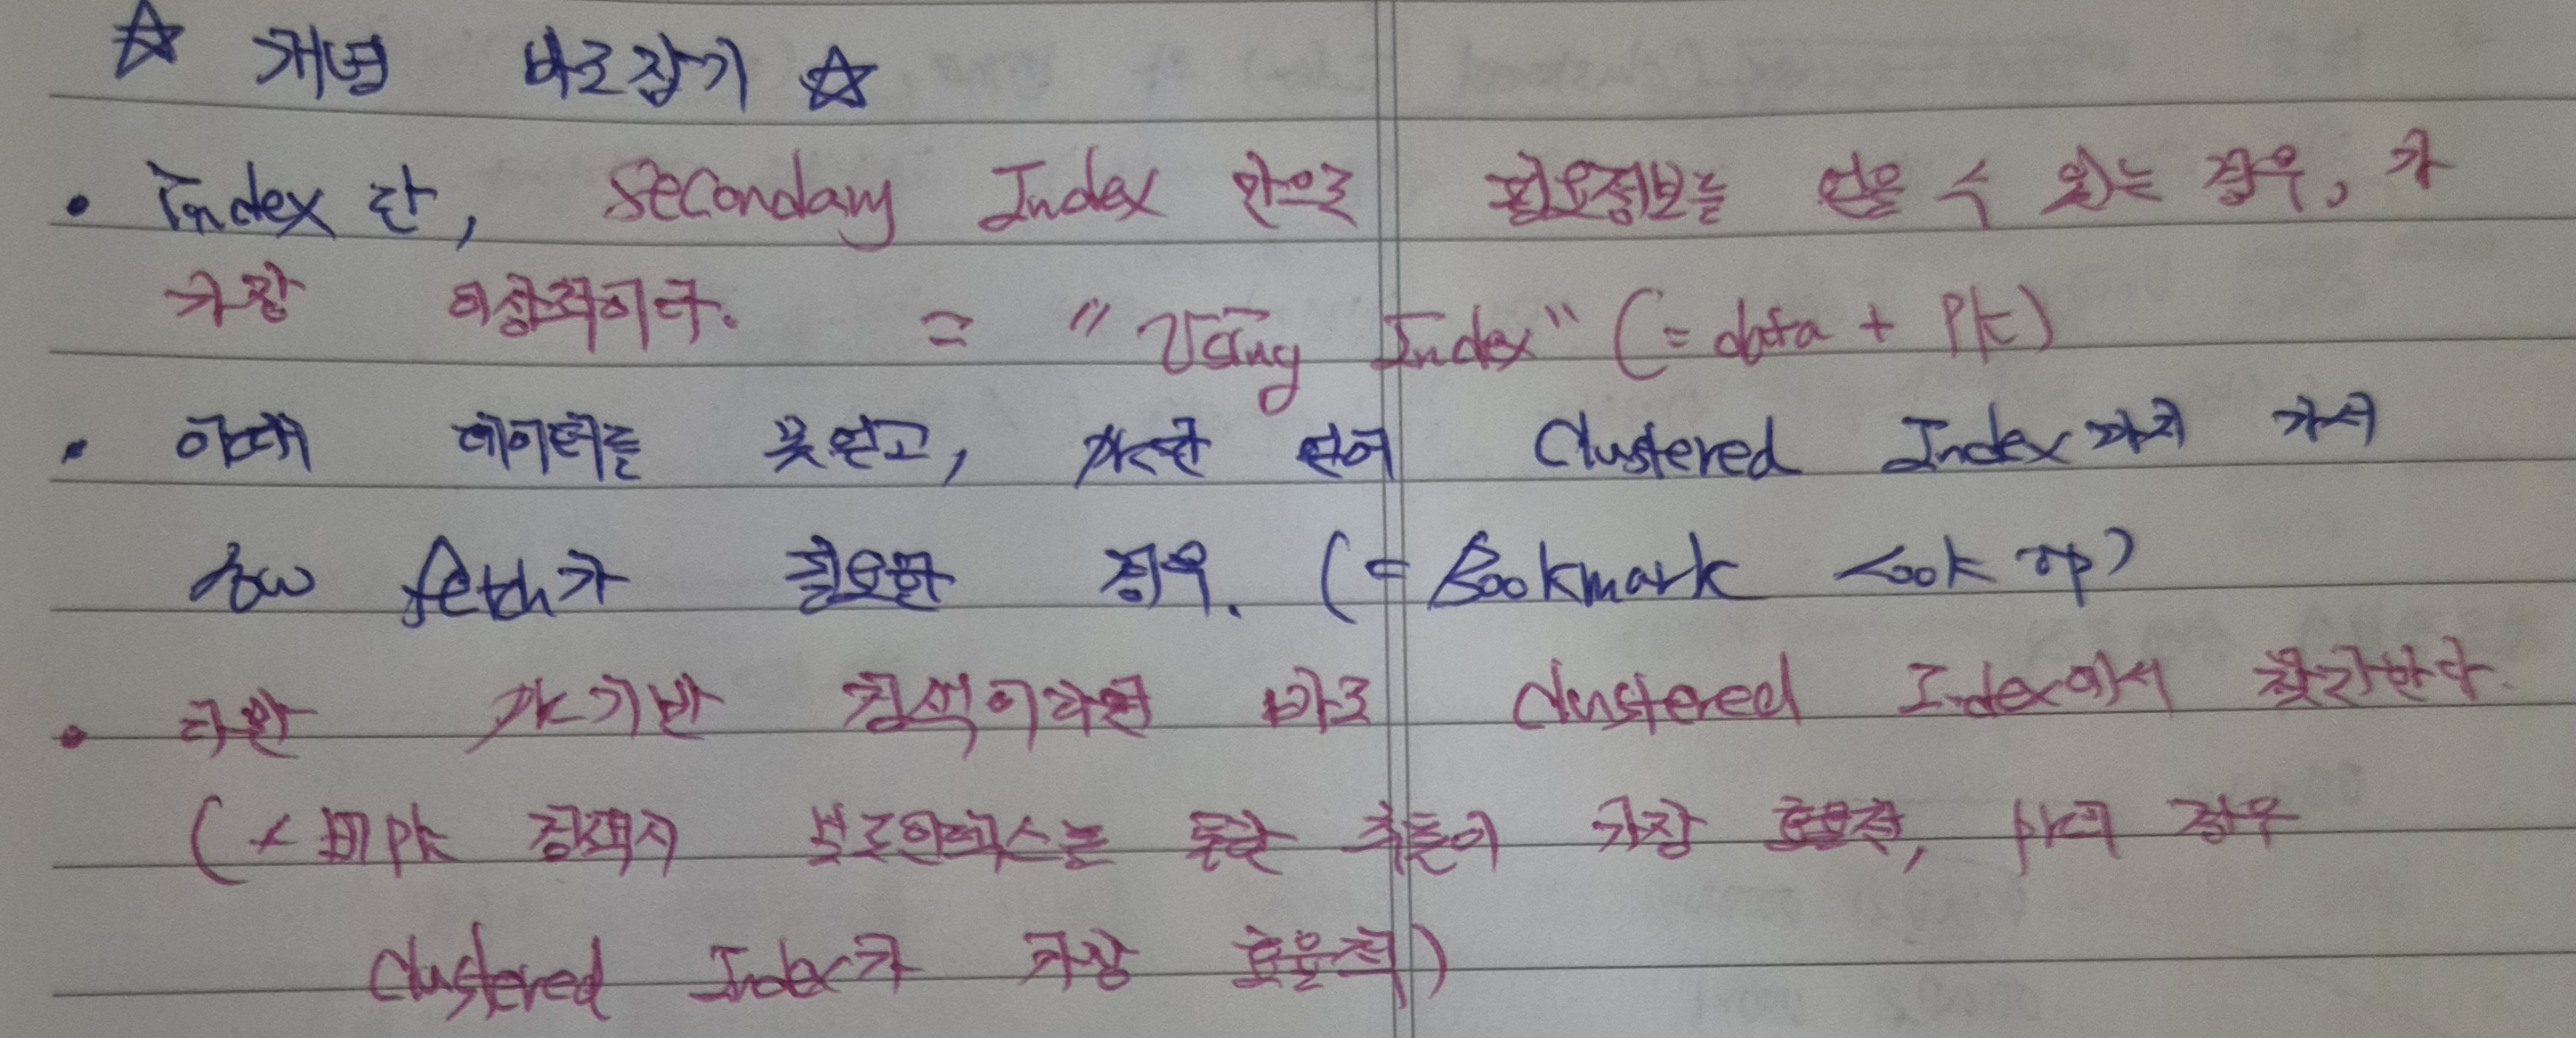 ☆ 개념 바로잡기 ☆
• Index 란, Secondary Index 만으로 필요정보를 얻을 수 있는 경우, 가
가장 이상적이다. = "Using Index" (= data + PK)
• 이때 데이터를 못얻고, PK만 얻어 Clustered Index까지 가서
row fetch가 필요한 경우. (= Bookmark Look up)
• 또한 PK기반 검색이라면 바로 Clustered Index에서 찾는다.
(+ 비PK 검색시 보조인덱스를 통한 추출이 가장 효율적, PK의 경우
Clustered Index가 가장 효율적)